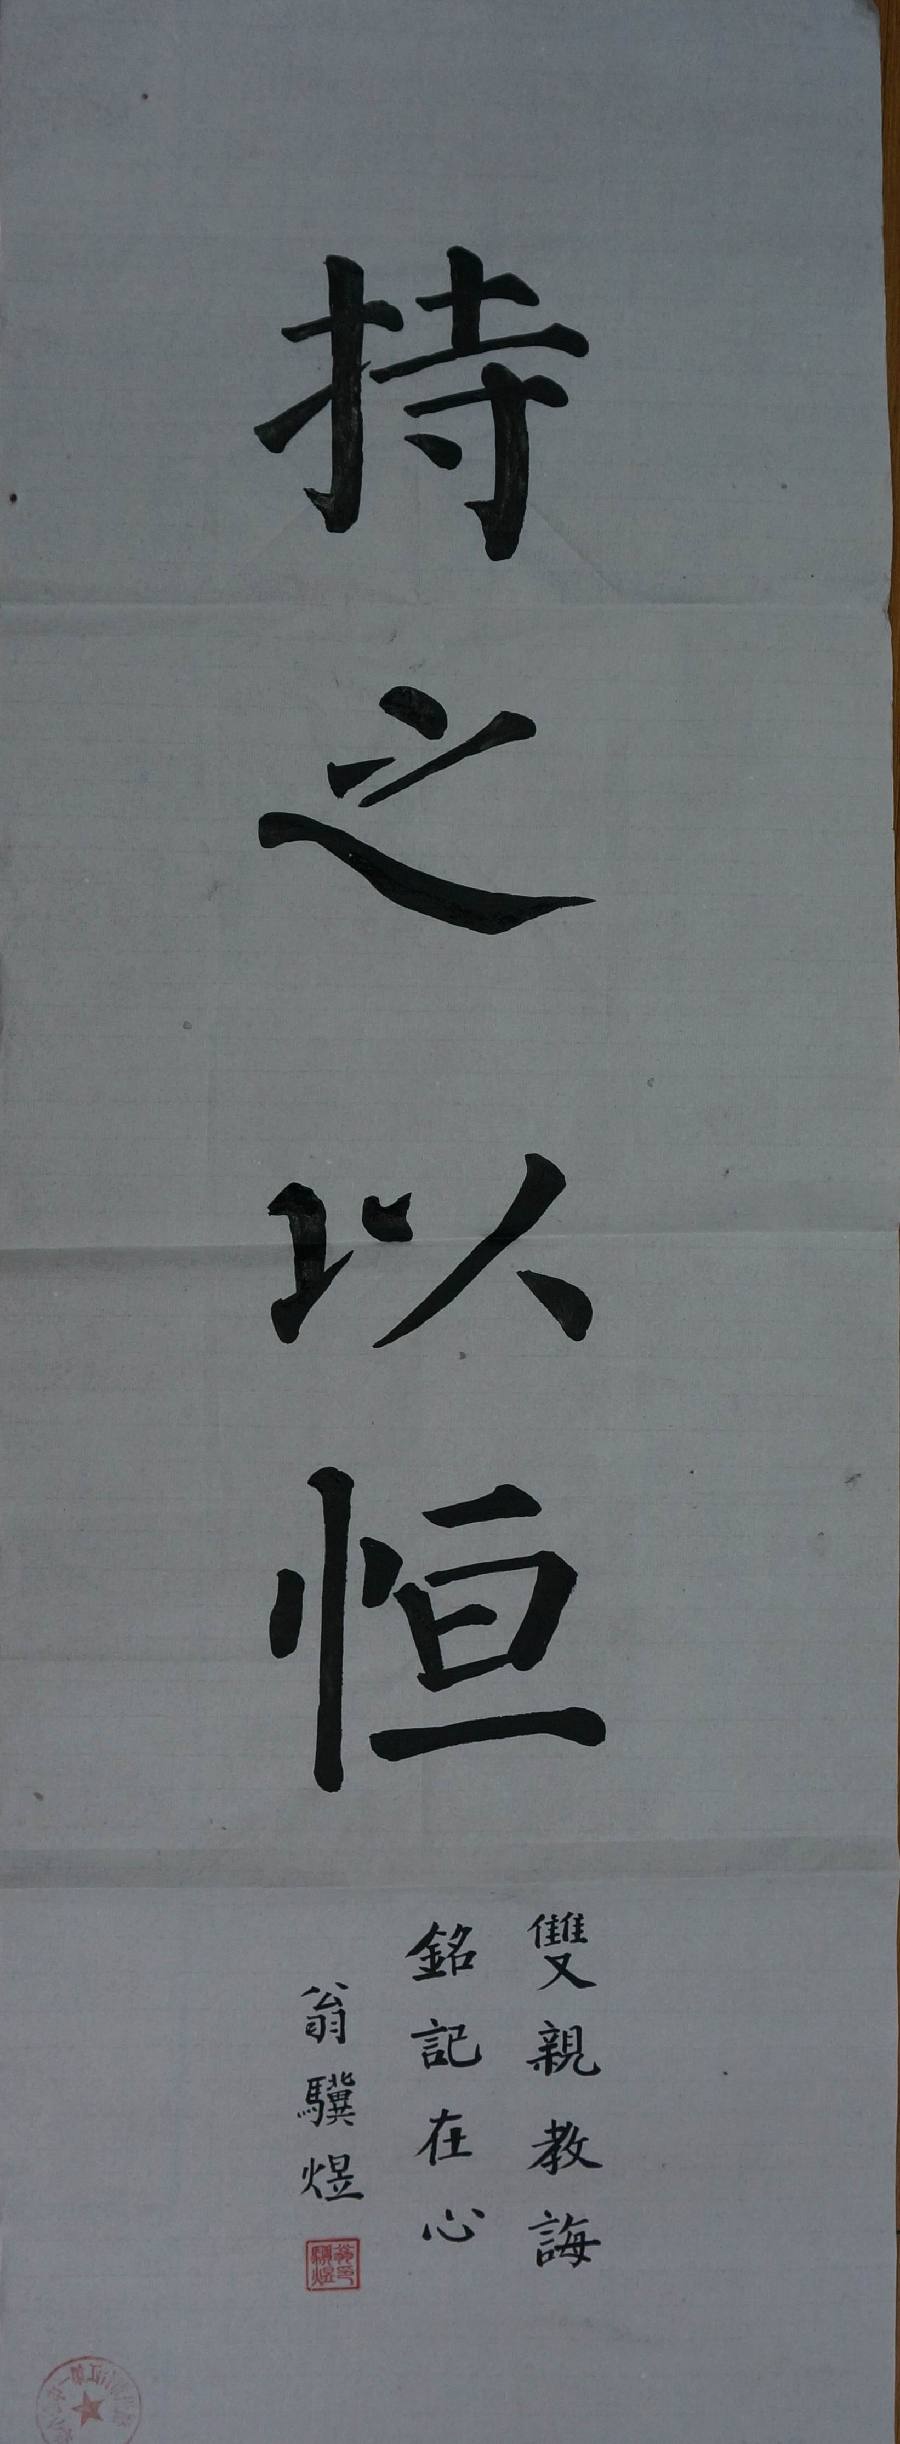 持之以恒
雙親教誨
銘記在心
翁驥煜